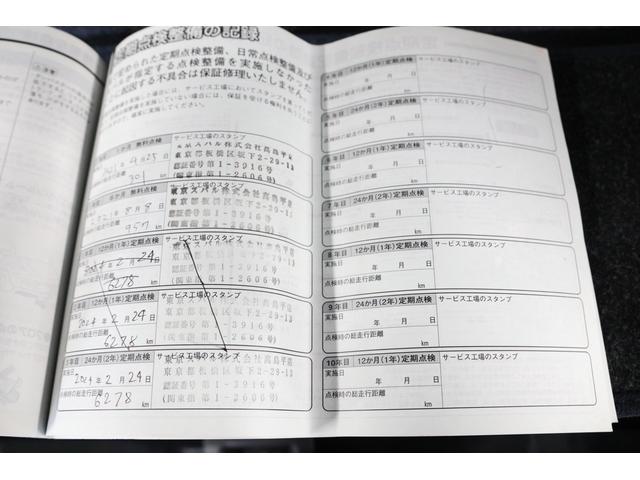 定期点検整備の記録
められた定期点検整備、日常点検整備及び
が指定する点検整備を実施しなかった
に起因する不具合は保証修理いたしません。
1か月 無料点検
サービス工場のスタンプ
東京スバル株式会社高島平店
東京都板橋区坂下2-29-13
認証番号第1-3916号
(関東指第1-2606号)
点検時の総走行距離
301 km
6か月 無料点検
サービス工場のスタンプ
東京スバル株式会社高島平店
東京都板橋区坂下2-29-13
認証番号第1-3916号
(関東指第1-2606号)
8月8日
957 km
12か月(1年)定期点検
サービス工場のスタンプ
東京スバル株式会社高島平店
東京都板橋区坂下2-29-13
認証番号第1-3916号
(関東指第1-2606号)
2024年2月24日
点検時の総走行距離
6278 km
12か月(1年)定期点検
サービス工場のスタンプ
東京スバル株式会社高島平店
東京都板橋区坂下2-29-13
認証番号第1-3916号
(関東指第1-2606号)
実施日
2024年2月24日
点検時の総走行距離
6278 km
24か月(2年)定期点検
サービス工場のスタンプ
東京スバル株式会社高島平店
東京都板橋区坂下2-29-13
認証番号第1-3916号
(関東指第1-2606号)
実施日
2024年2月24日
点検時の総走行距離
6278 km
4年目 12か月(1年)定期点検
サービス工場のスタンプ
実施日
年 月 日
点検時の総走行距離
km
5年目 24か月(2年)定期点検
サービス工場のスタンプ
実施日
年 月 日
点検時の総走行距離
km
6年目 12か月(1年)定期点検
サービス工場のスタンプ
実施日
年 月 日
点検時の総走行距離
km
7年目 24か月(2年)定期点検
サービス工場のスタンプ
実施日
年 月 日
点検時の総走行距離
km
8年目 12か月(1年)定期点検
サービス工場のスタンプ
実施日
年 月 日
点検時の総走行距離
km
9年目 24か月(2年)定期点検
サービス工場のスタンプ
実施日
年 月 日
点検時の総走行距離
km
10年目 12か月(1年)定期点検
サービス工場のスタンプ
実施日
年 月 日
点検時の総走行距離
km